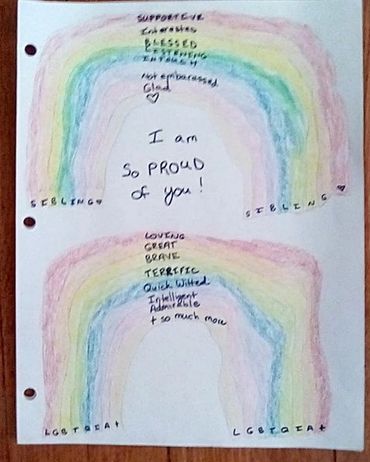 SUPPORTIVE
Interested
BLESSED
LISTENING
IN TOUCH
Not embarassed
Glad
I am
SO PROUD
of you!
SIBLING
SIBLING
LOVING
GREAT
BRAVE
TERRIFIC
Quick Witted
Intelligent
Admirable
+ so much more
LGBTQIA+
LGBTQIA+